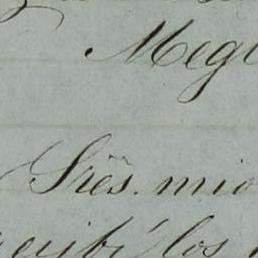 Megi
Sres. mio
recibí los